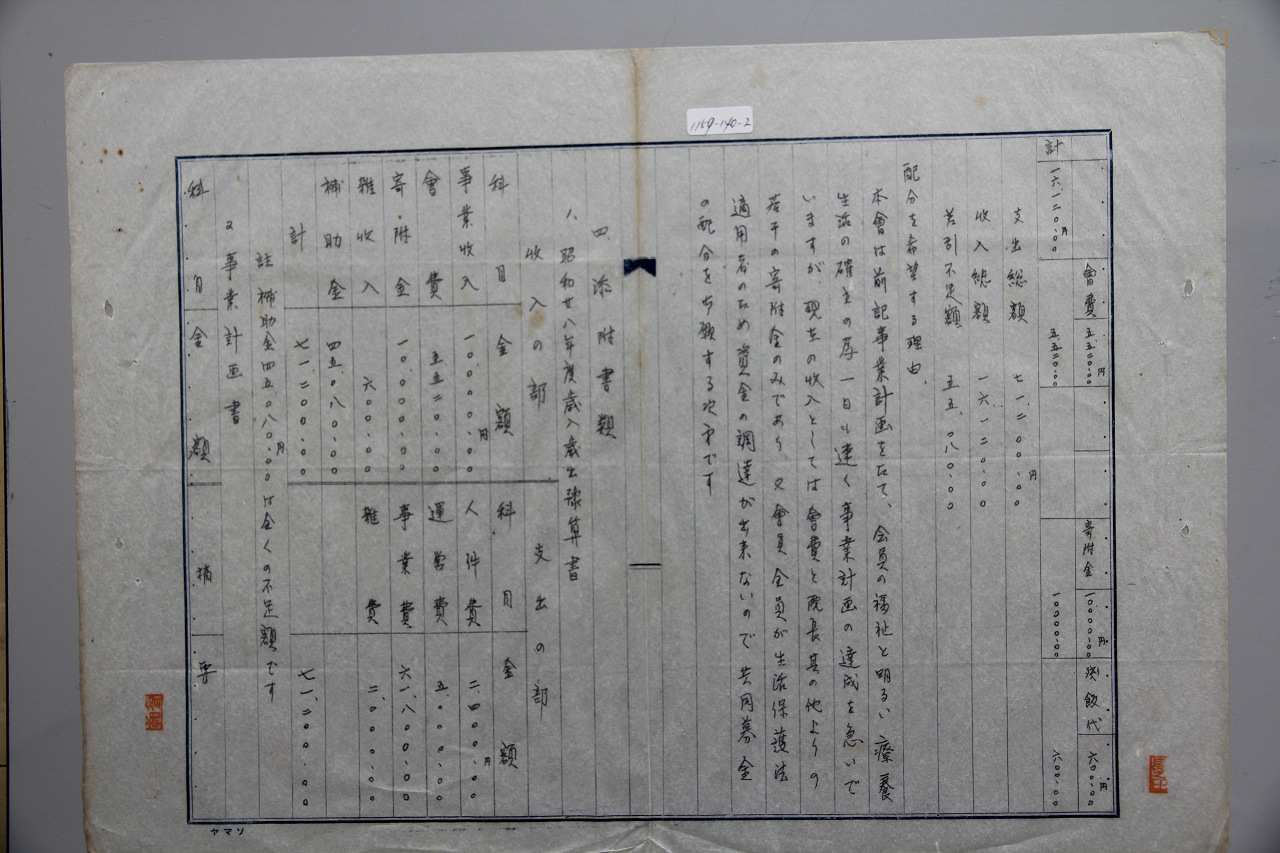 1159-140-2
計 一六、一二〇.〇〇円
會費 五、五二〇.〇〇円
五、五二〇.〇〇
寄附金 一〇、〇〇〇.〇〇円
一〇、〇〇〇.〇〇
残飯代 六〇〇.〇〇円
六〇〇.〇〇
支出総額 七一、二〇〇.〇〇円
收入総額 一六、一二〇.〇〇
差引不足額 五五、〇八〇.〇〇
配分を希望する理由、
本會は前記事業計画を立て、会員の福祉と明るい療養
生活の確立の為一日も速く事業計画の達成を急いで
いますが、現在の收入としては會費と院長其の他よりの
若干の寄附金のみであり、又會員全員が生活保護法
適用者のため資金の調達が出来ないので共同募金
の配分を御願する次第です
四、添附書類
1、昭和廿八年度歳入歳出豫算書
收入の部 支出の部
科目 金額 科目 金額
事業收入 一〇、〇〇〇.〇〇円 人件費 二、四〇〇.〇〇円
會費 五五二〇.〇〇 運営費 五、〇〇〇.〇〇
寄附金 一〇、〇〇〇.〇〇 事業費 六一、八〇〇.〇〇
雑收入 六〇〇.〇〇 雑費 二、〇〇〇.〇〇
補助金 四五、〇八〇.〇〇
計 七一、二〇〇.〇〇 七一、二〇〇.〇〇
註 補助金四五、〇八〇.〇〇円は全くの不足額です
2 事業計画書
科目 金額 摘要
ヤマソ